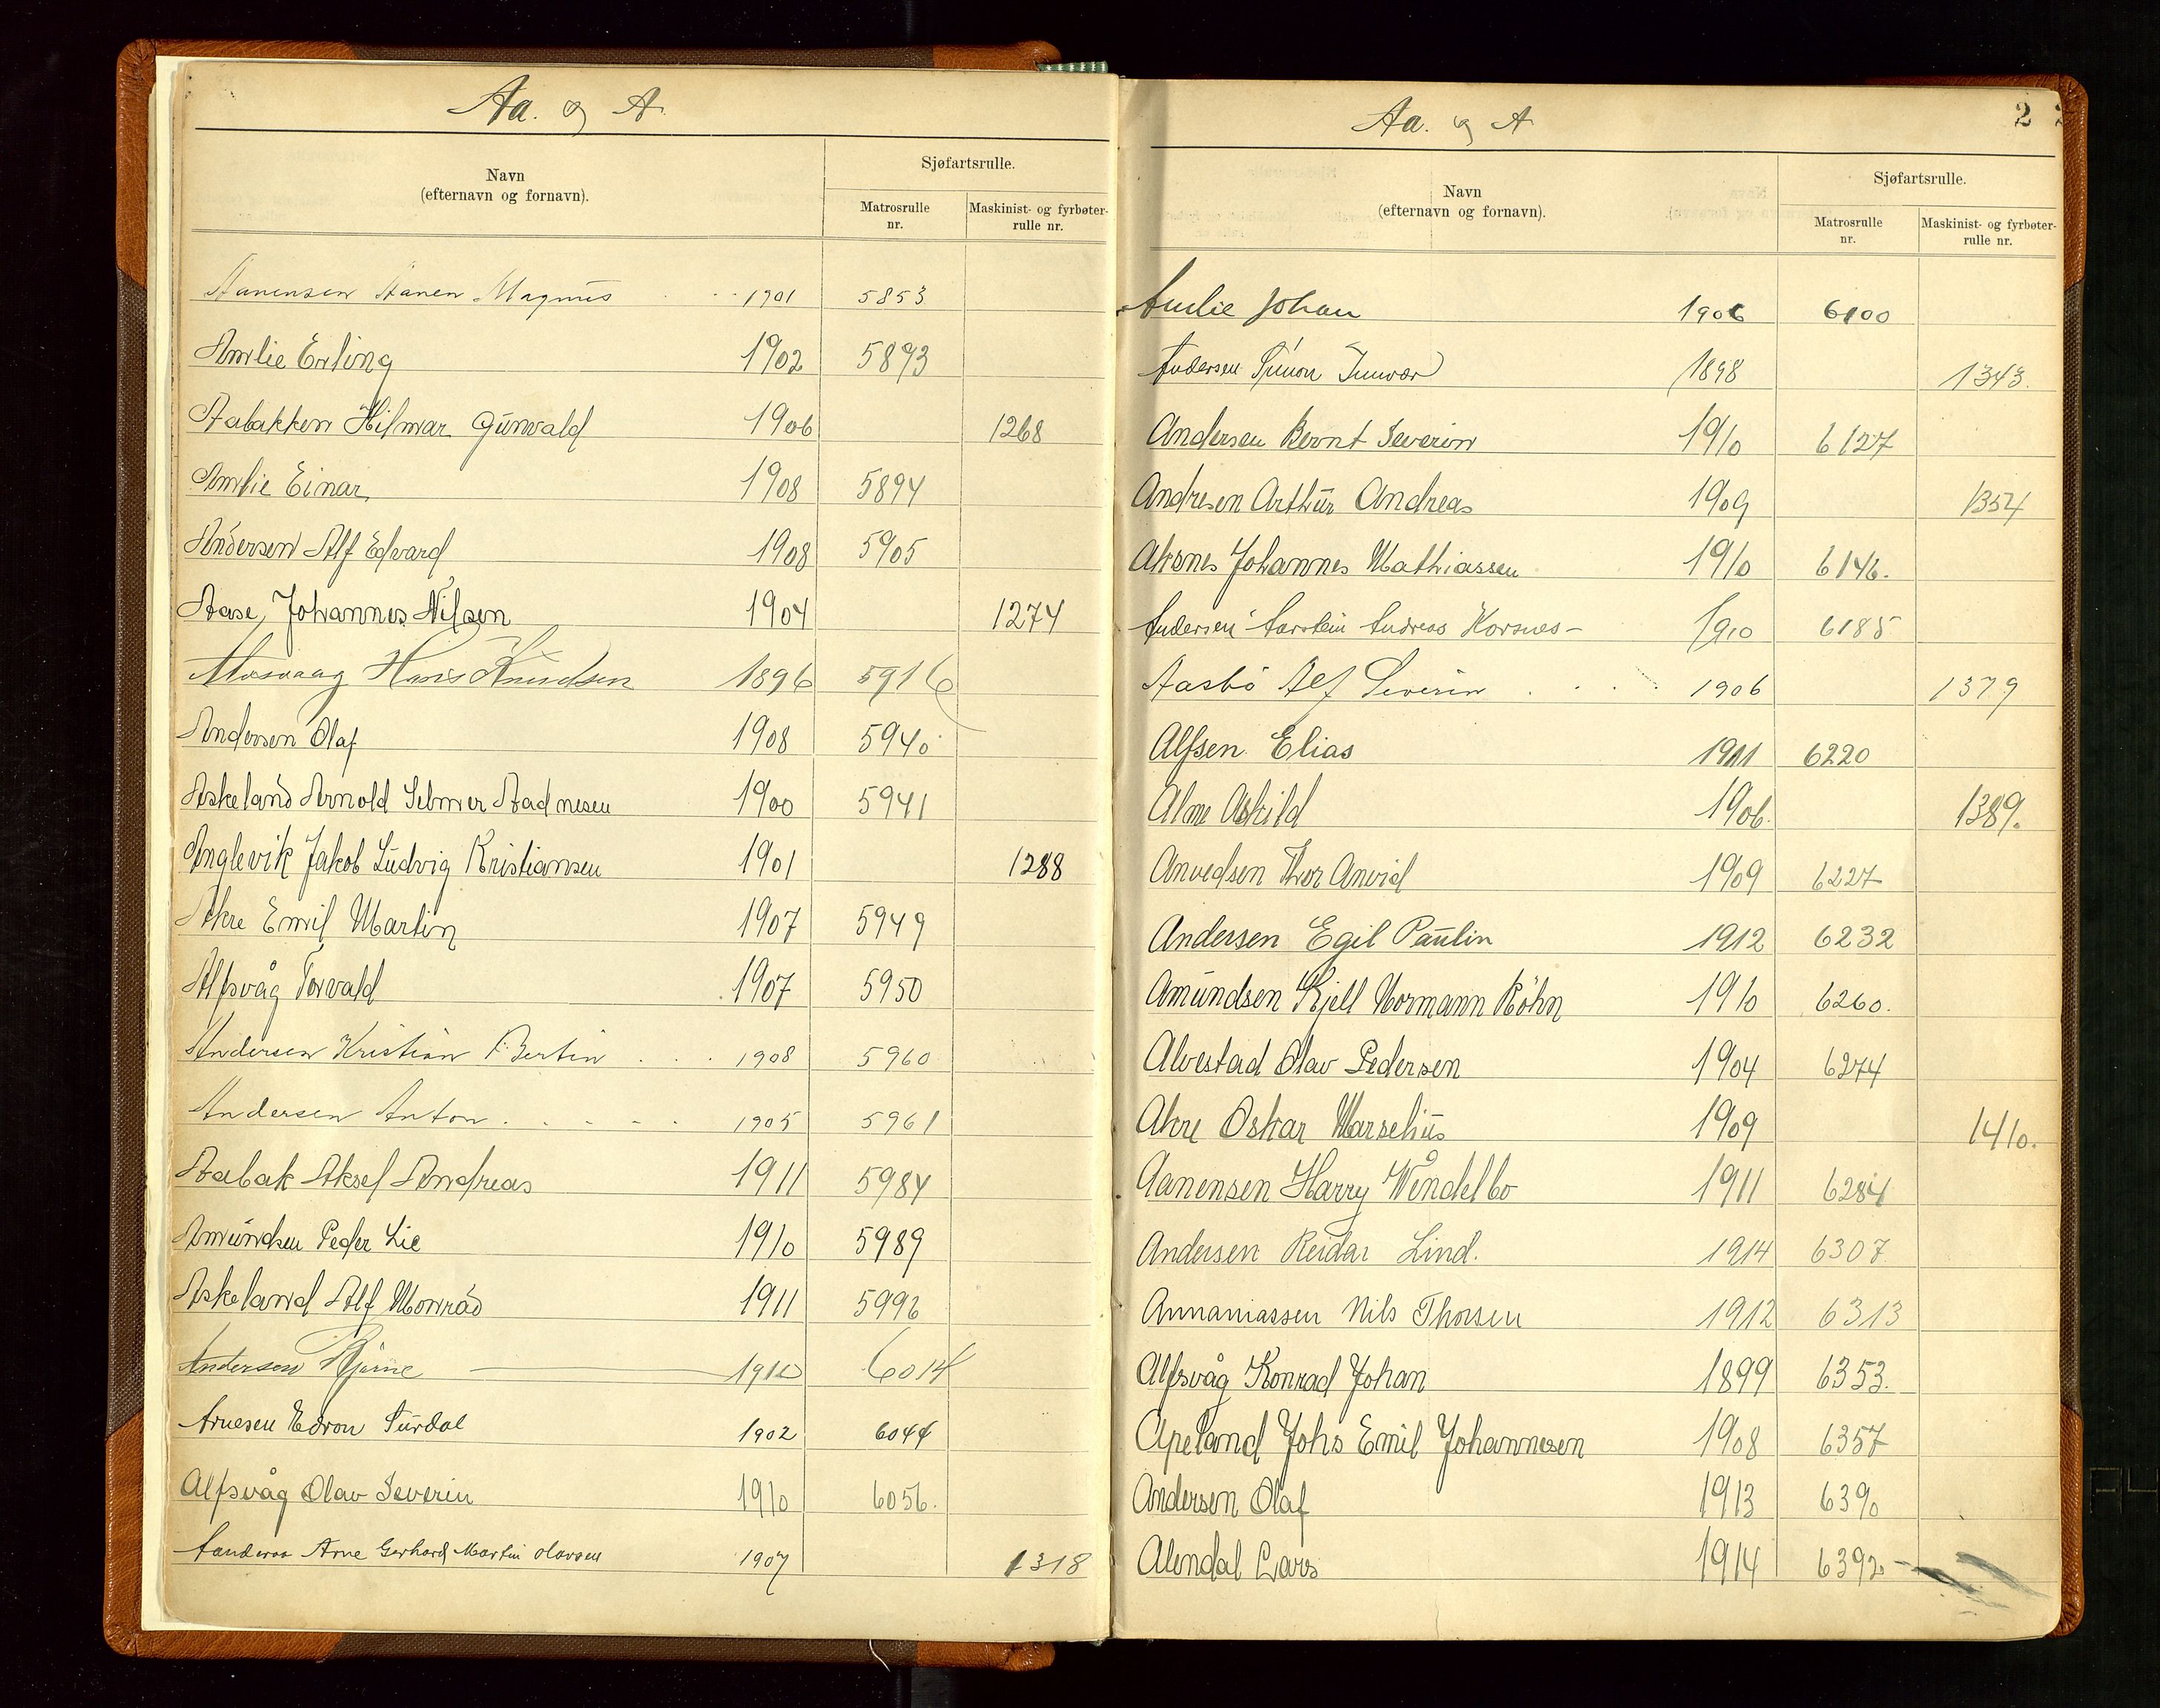 Aa. og A.
Navn
(efternavn og fornavn).
Sjøfartsrulle.
Matrosrulle
nr.
Maskinist- og fyrbøter-
rulle nr.
Aanensen Aanen Magnus 1901 5853
Amlie Erling 1902 5893
Aabakken Hilmar Gunvald 1906 1268
Amlie Einar 1908 5894
Andersen Alf Edvard 1908 5905
Aase, Johannes Nilsen 1904 1274
Hans Knudsen 1896 5916
Andersen Olaf 1908 5940
Askeland Arnold Selmer Aadnesen 1900 5941
Anglevik Jakob Ludvig Kristiansen 1901 1288
Akre Emil Martin 1907 5949
Alfsvåg Torvald 1907 5950
Andersen Kristian Bertin 1908 5960
Andersen Anton 1905 5961
Aabak Aksel Andreas 1911 5984
Amundsen Peder Lie 1910 5989
Askeland Alf Monrad 1911 5996
Andersen Bjarne 6014
Arnesen Edvon 1902 6044
Alfsvåg Olav Severin 1910 6056.
Arne Gerhard Martin Olavsen 1907 1318
Aa. og A
2
Navn
(efternavn og fornavn).
Sjøfartsrulle.
Matrosrulle
nr.
Maskinist- og fyrbøter-
rulle nr.
Amlie Johan 1906 6100
Andersen Simon Ingvar 1898 1343.
Andersen Bernt Severin 1910 6127
Andresen Arthur Andreas 1909 1354
Aksnes Johannes Mathiassen 1910 6146.
Andersen Karstein Andreas Korsnes 1910 6185
Aasbö Alf Severin 1906 1379
Alfsen Elias 1911 6220
Alme Askild 1906. 1389.
Anvedsen Thor Anvid 1909 6227
Andersen Egil Paulin 1912 6232
Amundsen Kjell Normann Röhn 1910 6260.
Alvestad Olav Pedersen 1904 6274
Akre Oskar Marselius 1909 1410.
Aanensen Harry Wendelbo 1911 6284
Andersen Reidar Lind. 1914 6307
Annaniassen Nils Thorsen 1912 6313
Alfsvåg Konrad Johan 1899 6353.
Apeland Johs Emil Johannesen 1908 6357
Andersen Olaf 1913 6390
Alendal Lars 1914 6392